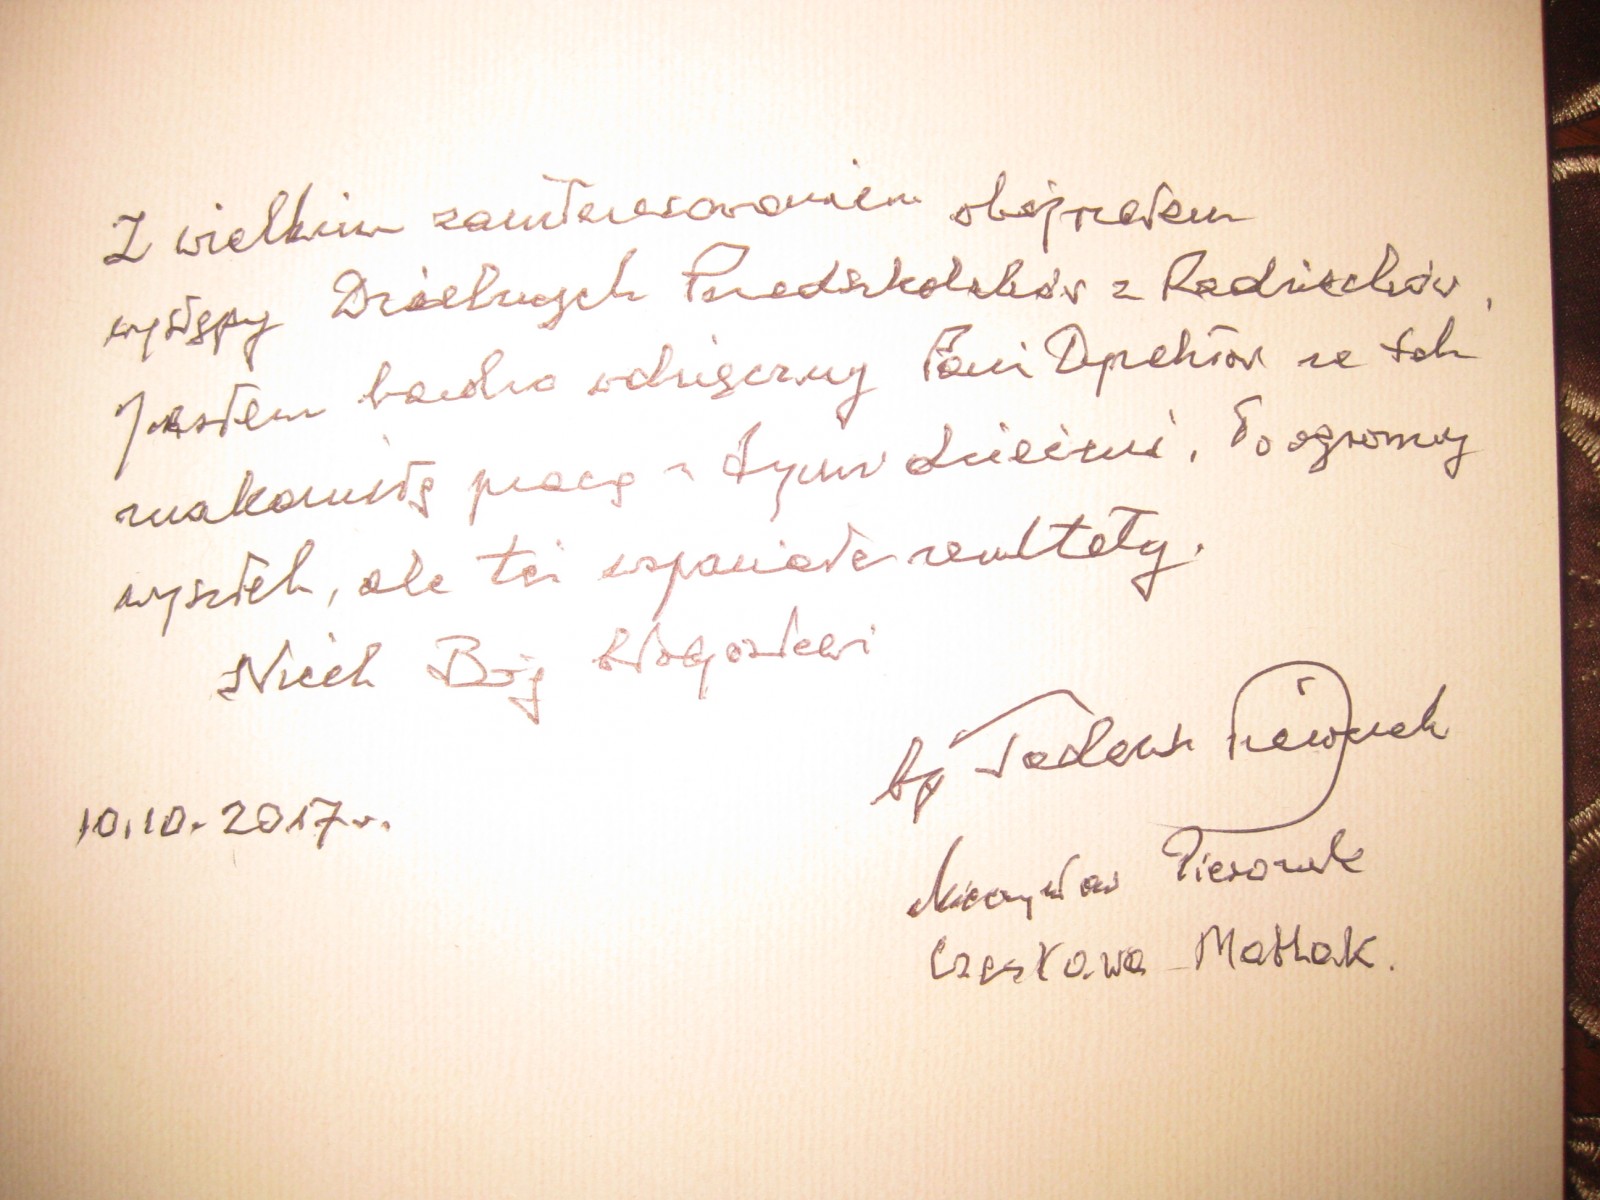 Z wielkim zainteresowaniem obejrzałem
występy Dzielnych Przedszkolaków z Radziechów,
Jestem bardzo wdzięczny Pani Dyrektor za tak
znakomitą pracę z tymi dziećmi. To ogromny
wysiłek, ale też wspaniałe rezultaty.
Niech Bóg błogosławi
bp Tadeusz Pieronek
10.10.2017 r.
Mieczysław Pieronek
Czesława Matlak.